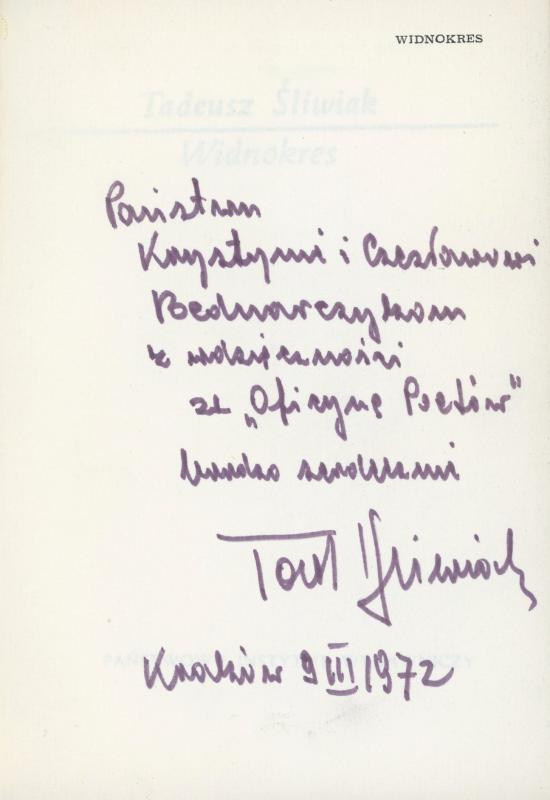 WIDNOKRES
Tadeusz Śliwiak
Widnokres
Państwu
Krystynie i Czesławowi
Bednarczykom
z wdzięczności
za „Oficynę Poetów"
bardzo serdecznie
Tad Śliwiak
PAŃSTWOWY INSTYTUT WYDAWNICZY
Kraków 9 III 1972